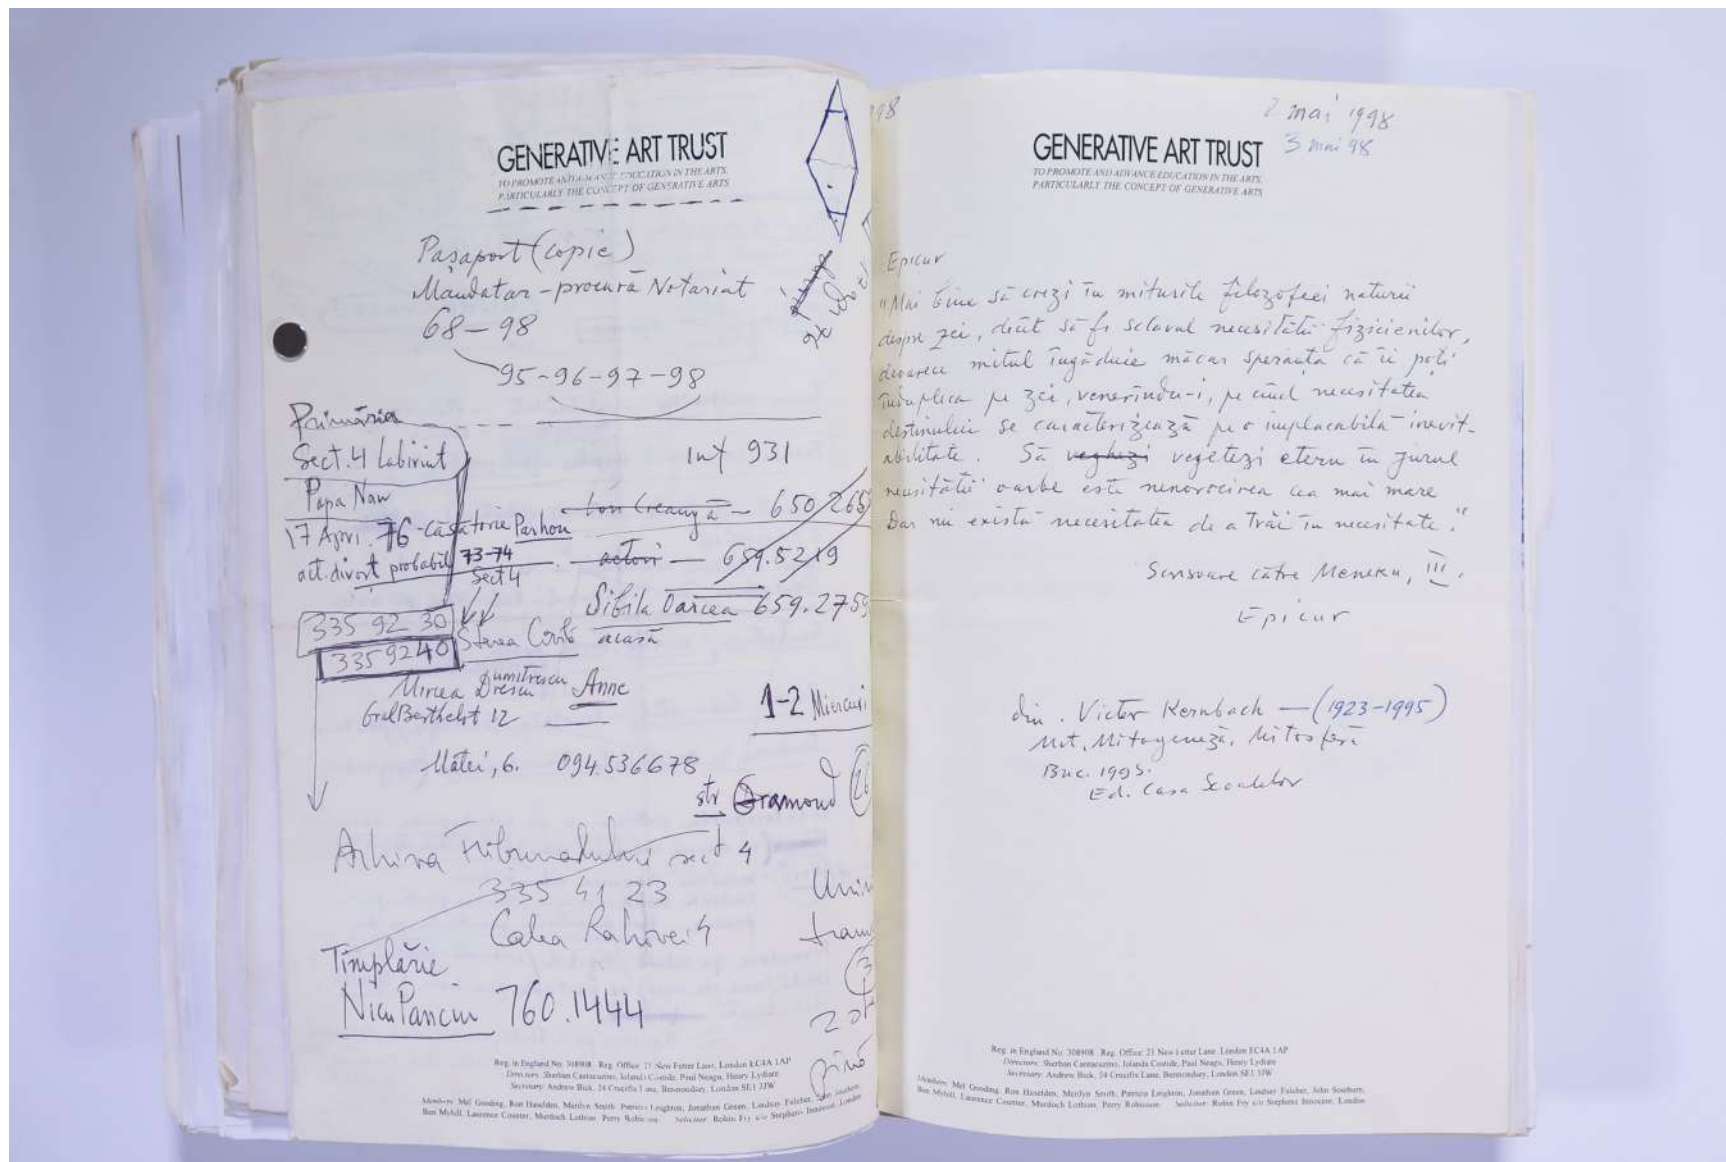 GENERATIVE ART TRUST
TO PROMOTE AND ADVANCE EDUCATION IN THE ARTS,
PARTICULARLY THE CONCEPT OF GENERATIVE ARTS
Pașaport (copie)
Mandatar - procură Notariat
68 - 98
95-96-97-98
Primăria
Sect. 4 Labirint
int 931
Papa Naw
Ion Creangă - 650 265
17 Apri. 76 - căsătorie Parhon
act. divorț probabil 73-74
Sect 4
actori - 659.5219
Sibila Oarcea 659.2759
acasă
335 92 30
335 92 40
Mircea Dumitrescu Anne
Gral Berthelot 12
1-2 Miercuri
Matei, 6. 094.536678
str
Arhiva Tribunalului sect 4
335 41 23
Calea Rahovei 4
Tîmplărie
Nicu Panciu 760.1444
pînă
Reg. in England No. 308908 Reg. Office: 21 New Fetter Lane, London EC4A 1AP
Directors: Sherban Cantacuzino, Iolanda Costide, Paul Neagu, Henry Lydiate
Secretary: Andrew Bick, 24 Crucifix Lane, Bermondsey, London SE1 3JW
Members: Mel Gooding, Ron Haselden, Merilyn Smith, Patricia Leighton, Jonathan Green, Lindsey Fulcher, John Southern,
Ben Myhill, Laurence Counter, Murdoch Lothian, Perry Robinson Solicitor: Robin Fry c/o Stephens Innocent, London
2 mai 1998
3 mai 98
GENERATIVE ART TRUST
TO PROMOTE AND ADVANCE EDUCATION IN THE ARTS,
PARTICULARLY THE CONCEPT OF GENERATIVE ARTS
Epicur
"Mai bine să crezi în miturile filozofiei naturii
despre zei, decît să fi sclavul necesității fizicienilor,
deoarece mitul îngăduie măcar speranța că îi poți
îndupleca pe zei, venerîndu-i, pe cînd necesitatea
destinului se caracterizează pe o implacabilă inevit-
abilitate. Să veghezi vegetezi etern în jurul
necesității oarbe este nenorocirea cea mai mare
Dar nu există necesitatea de a trăi în necesitate."
Scrisoare către Meneceu, III.
Epicur
din. Victor Kernbach - (1923-1995)
Mit, Mitogeneză, Mitosferă
Buc. 1995.
Ed. Casa Școalelor
Reg. in England No. 308908 Reg. Office: 21 New Fetter Lane, London EC4A 1AP
Directors: Sherban Cantacuzino, Iolanda Costide, Paul Neagu, Henry Lydiate
Secretary: Andrew Bick, 24 Crucifix Lane, Bermondsey, London SE1 3JW
Members: Mel Gooding, Ron Haselden, Merilyn Smith, Patricia Leighton, Jonathan Green, Lindsey Fulcher, John Southern,
Ben Myhill, Laurence Counter, Murdoch Lothian, Perry Robinson Solicitor: Robin Fry c/o Stephens Innocent, London